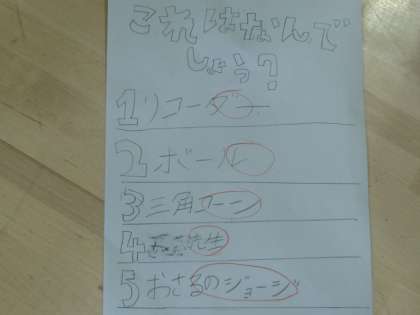 これはなんで
しょう?
1 リコーダー
2 ボール
3 三角コーン
4 先生
5 おさるのジョージ